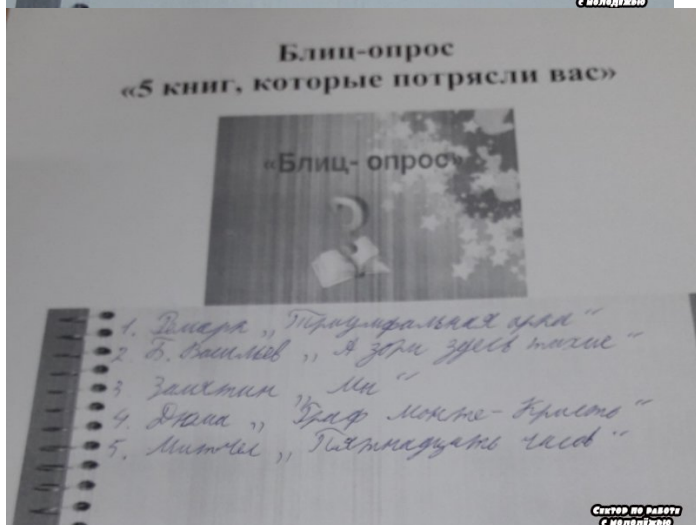 с молодёжью
Блиц-опрос
«5 книг, которые потрясли вас»
«Блиц- опрос»
1. Ремарк „Триумфальная арка“
2 Б. Васильев „А зори здесь тихие“
3 Замятин „Мы“
4. Дюма „Граф Монте-Кристо“
5. Митчел „Пятнадцать часов“
Сектор по работе
с молодёжью